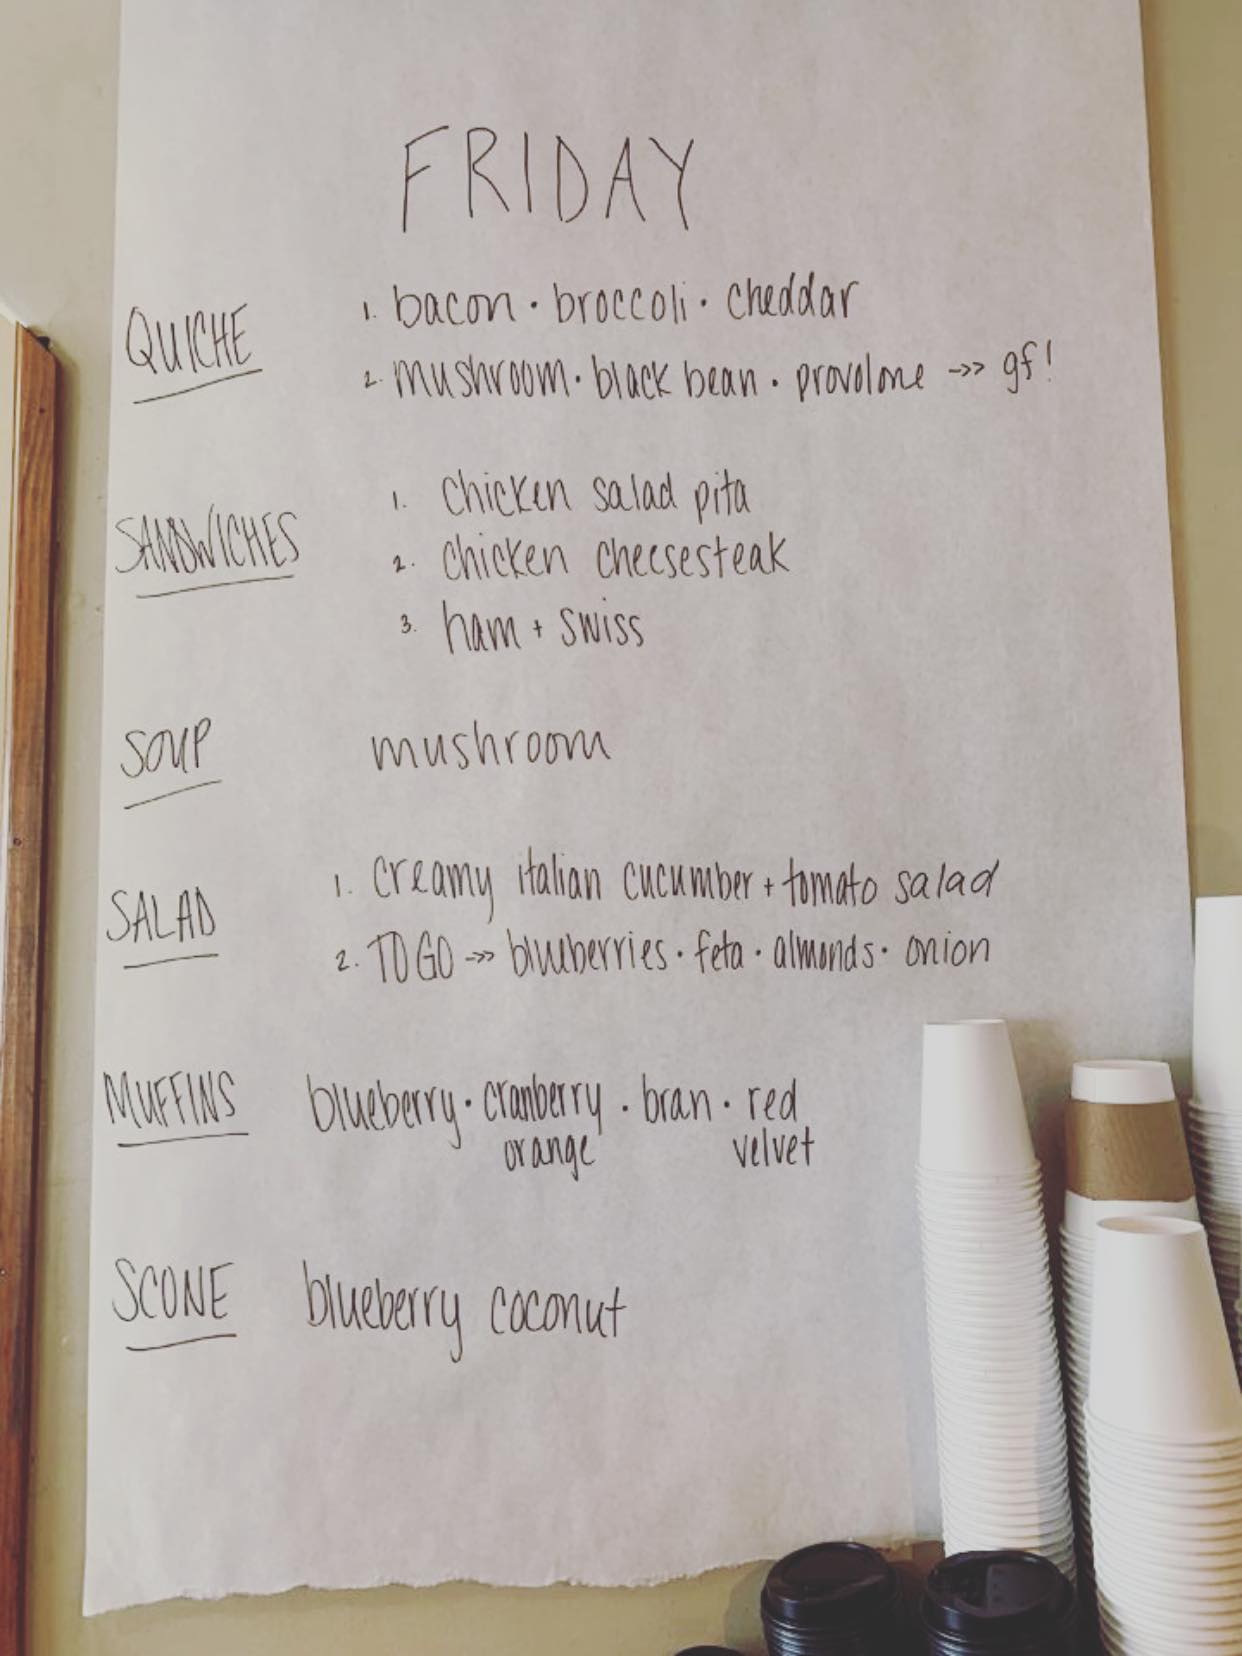 FRIDAY
QUICHE
1. bacon · broccoli · cheddar
2. mushroom · black bean · provolone ->> gf!
SANDWICHES
1. chicken salad pita
2. chicken cheesesteak
3. ham + swiss
SOUP
mushroom
SALAD
1. creamy italian cucumber + tomato salad
2. TO GO ->> blueberries · feta · almonds · onion
MUFFINS
blueberry · cranberry · bran · red
orange velvet
SCONE
blueberry coconut